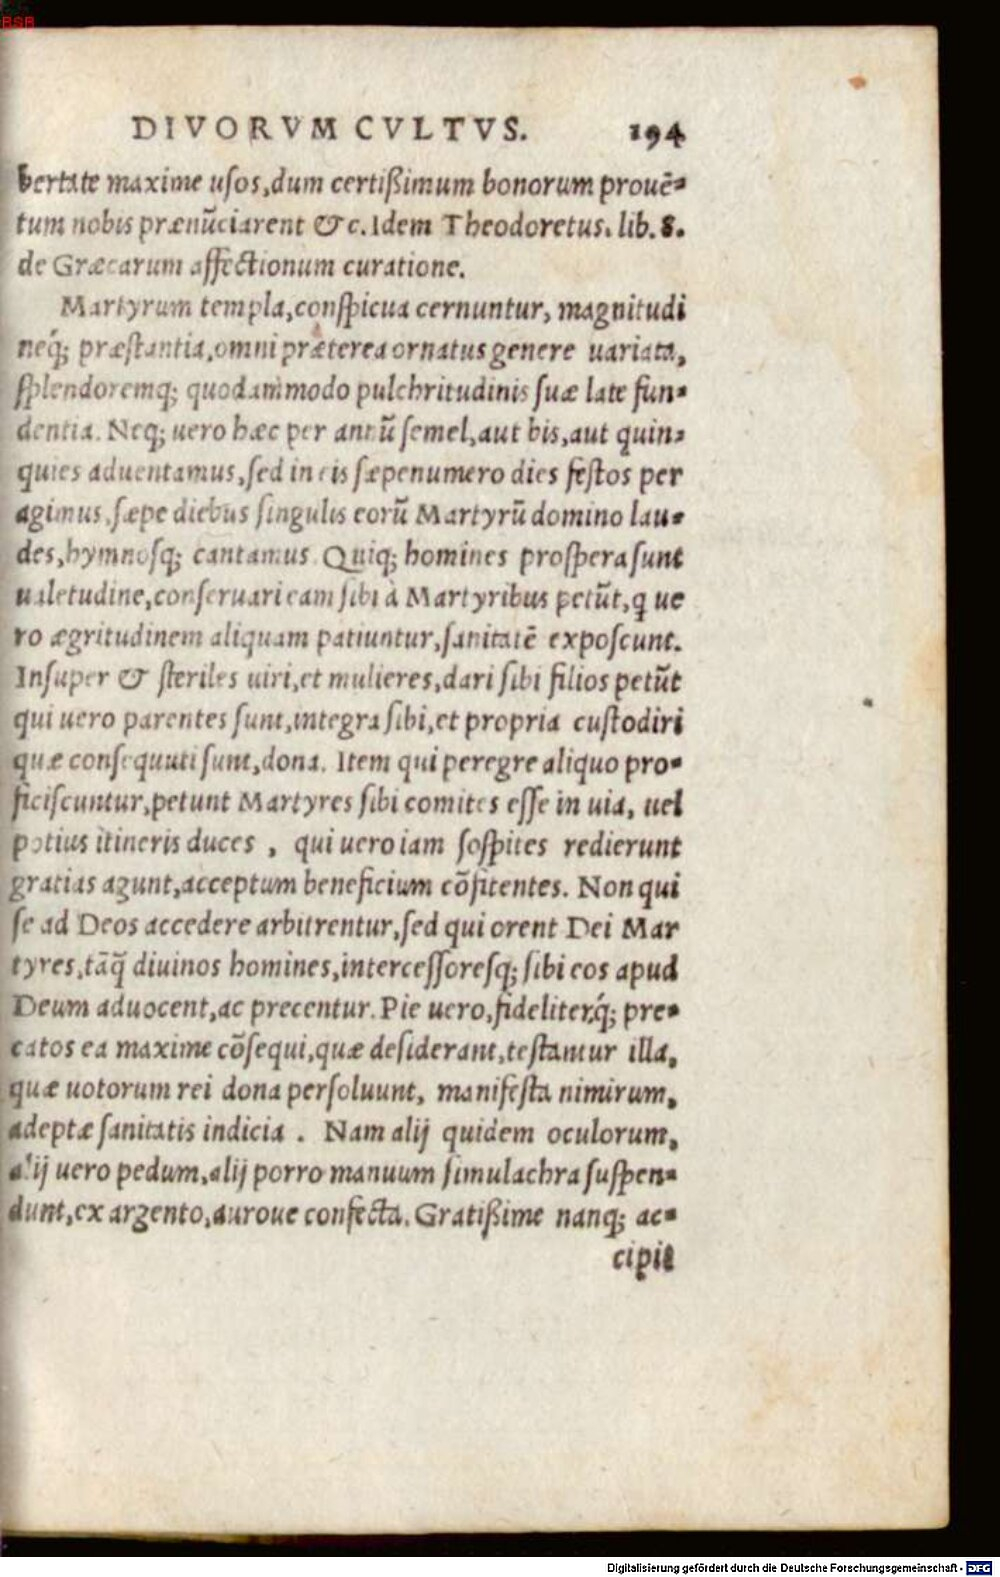 BSB
DIVORVM CVLTVS. 194
bertate maxime usos, dum certißimum bonorum prouē-
tum nobis prænūciarent &c. Idem Theodoretus. lib. 8.
de Græcarum affectionum curatione.
Martyrum templa, conspicua cernuntur, magnitudi
neq́; præstantia, omni præterea ornatus genere uariata,
splendoremq; quodammodo pulchritudinis suæ late fun-
dentia. Neq; uero hæc per annū semel, aut bis, aut quin-
quies aduentamus, sed in eis sæpenumero dies festos per
agimus, sæpe diebus singulis eorū Martyrū domino lau-
des, hymnosq; cantamus. Quiq; homines prospera sunt
ualetudine, conseruari eam sibi à Martyribus petūt, q ue
ro ægritudinem aliquam patiuntur, sanitatē exposcunt.
Insuper & steriles uiri, et mulieres, dari sibi filios petūt
qui uero parentes sunt, integra sibi, et propria custodiri
quæ consequuti sunt, dona. Item qui peregre aliquo pro-
ficiscuntur, petunt Martyres sibi comites esse in uia, uel
potius itineris duces, qui uero iam sospites redierunt
gratias agunt, acceptum beneficium cōfitentes. Non qui
se ad Deos accedere arbitrentur, sed qui orent Dei Mar
tyres, tāq̃ diuinos homines, intercessoresq; sibi eos apud
Deum aduocent, ac precentur. Pie uero, fideliterq́; pre-
catos ea maxime cōsequi, quæ desiderant, testantur illa,
quæ uotorum rei dona persoluunt, manifesta nimirum,
adeptæ sanitatis indicia. Nam alij quidem oculorum,
alij uero pedum, alij porro manuum simulachra suspen-
dunt, ex argento, auroue confecta. Gratißime nanq; ac-
cipit
Digitalisierung gefördert durch die Deutsche Forschungsgemeinschaft - DFG